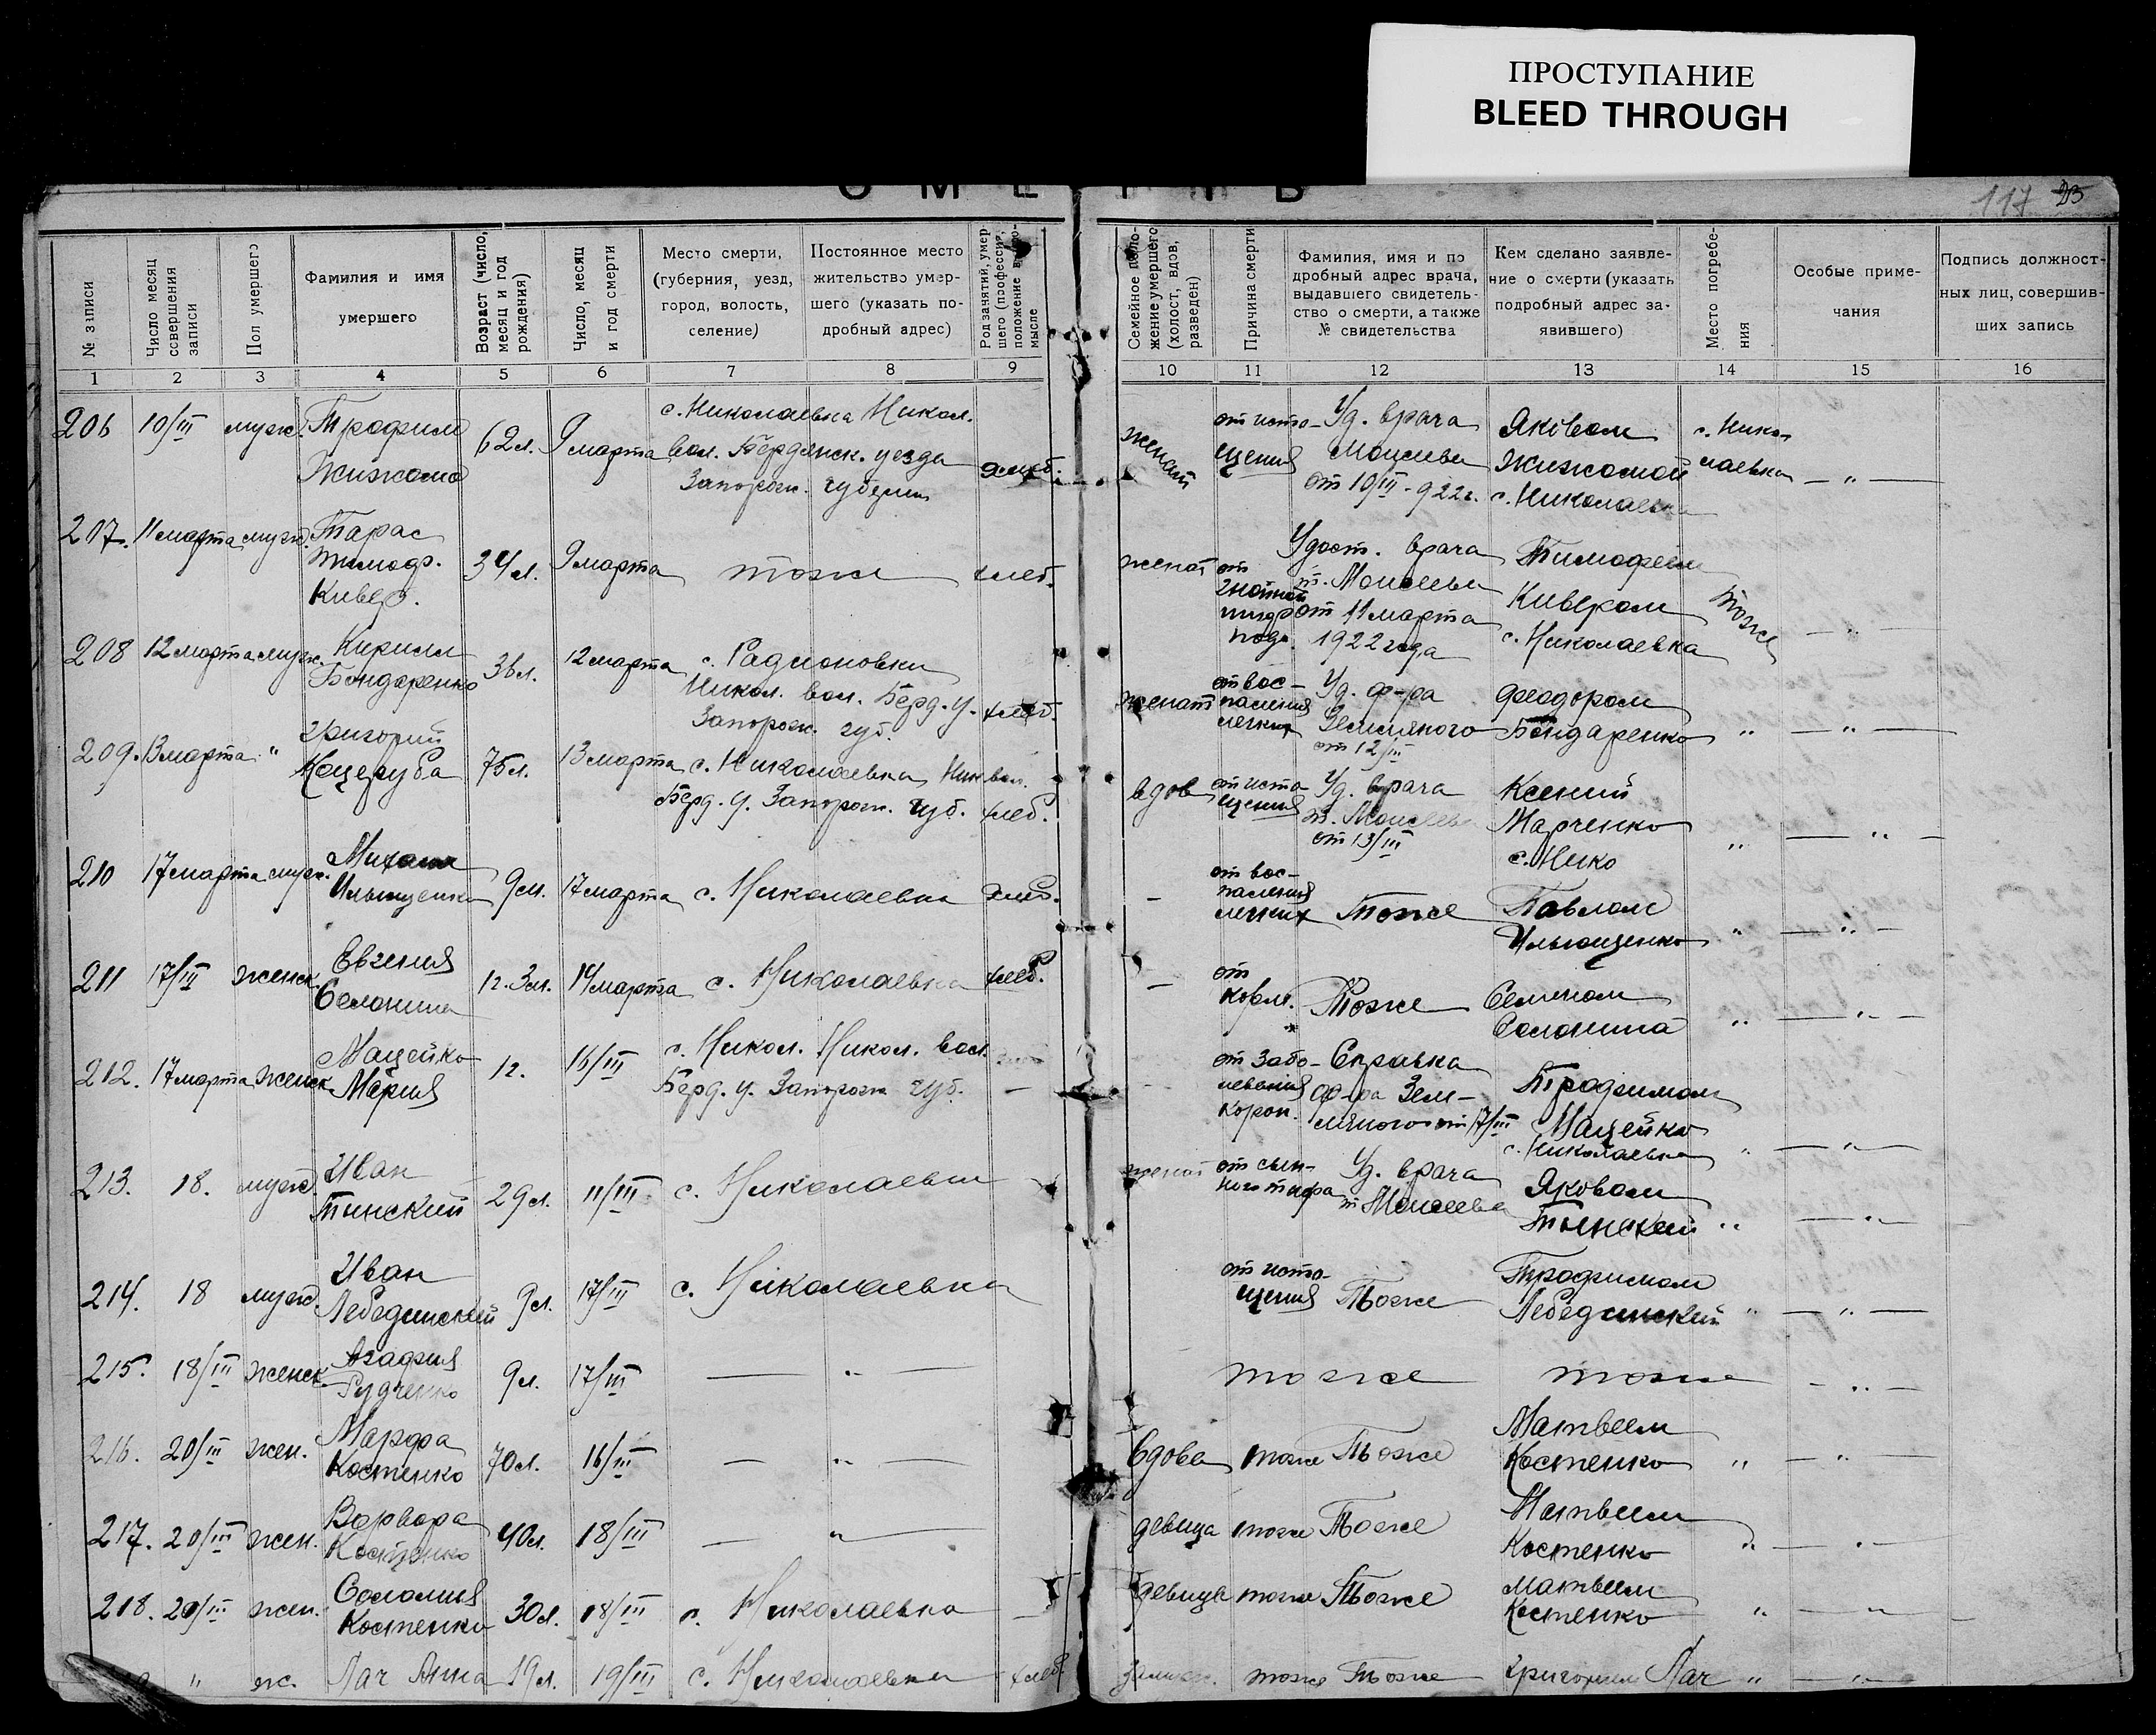 ПРОСТУПАНИЕ
BLEED THROUGH
117
№ записи
Число месяц совершения записи
Пол умершего
Фамилия и имя умершего
Возраст (число, месяц и год рождения)
Число, месяц и год смерти
Место смерти, (губерния, уезд, город, волость, селение)
Постоянное место жительство умершего (указать подробный адрес)
Семейное положение умершего (холост, вдов, разведен)
Причина смерти
Фамилия, имя и подробный адрес врача, выдавшего свидетельство о смерти, а также № свидетельства
Кем сделано заявление о смерти (указать подробный адрес заявившего)
Место погребения
Особые примечания
Подпись должностных лиц, совершивших запись
1 2 3 4 5 6 7 8 9 10 11 12 13 14 15 16
206 10/III муж. Трофим Жижома 62 л. 9 марта с. Николаевка Никол. вол. Бердянск. уезда Запорож. губернии женат от истощения Уд. врача Моисеева от 10/III-922г. Яковом Жижомой с. Николаевка с. Николаевка — " —
207. 11 марта муж. Тарас Тимоф. Кивер. 34 л. 9 марта тоже хлеб. женат от Удост. врача т. Моисеева от 11 марта 1922 года Тимофеем Кивером с. Николаевка тоже — " —
208 12 марта муж. Кирилл Бондаренко 36 л. 12 марта с. Радионовка Никол. вол. Берд. у. Запорож. губ. хлеб. женат от воспаления легких Уд. ф-ра Земляного от 12/III Феодором Бондаренко " — " —
209. 13 марта " Григорий Кацеруба 75 л. 13 марта с. Николаевка Ник вол. Берд. у. Запорож. губ. хлеб. вдов от истощения Уд. врача т. Моисеева от 13/III Ксенией Марченко с. Нико " — " —
210 17 марта муж. Михаил Ильющенко 9 м. 17 марта с. Николаевка хлеб. - от воспаления легких Тоже Павлом Ильющенко " — " —
211 17/III женск. Евгения Солонина 1 г. 3 м. 14 марта с. Николаевка хлеб. — от Тоже Семеном Солонина " — " —
212. 17 марта женск Мацейко Мария 1 г. 16/III с. Никол. Никол. вол. Берд. у. Запорож губ. — - от заболевания Справка ф-ра Земляного от 17/III Трофимом Мацейко с. Николаевка " — " —
213. 18. муж. Иван Тынский 29 л. 11/III с. Николаевка женат от сыпного тифа Уд. врача т Моисеева Яковом Тынский " — " —
214. 18 муж. Иван Лебединский 9 л. 17/III с. Николаевка от истощения Тоже Трофимом Лебединский " — " —
215. 18/III женск Агафия Рудченко 9 л. 17/III — " — тоже тоже — " —
216. 20/III жен. Марфа Костенко 70 л. 16/III — " — Вдова тоже Тоже Матвеем Костенко " — " —
217. 20/III жен. Варвара Костенко 40 л. 18/III — " — девица тоже Тоже Матвеем Костенко " — " —
218. 20/III жен. Соломия Костенко 30 л. 18/III с. Николаевка — девица тоже Тоже Матвеем Костенко " — " —
" ж. Лач Анна 19 л. 19/III с. Николаевка хлеб. тоже Тоже Григорием Лач " — " —